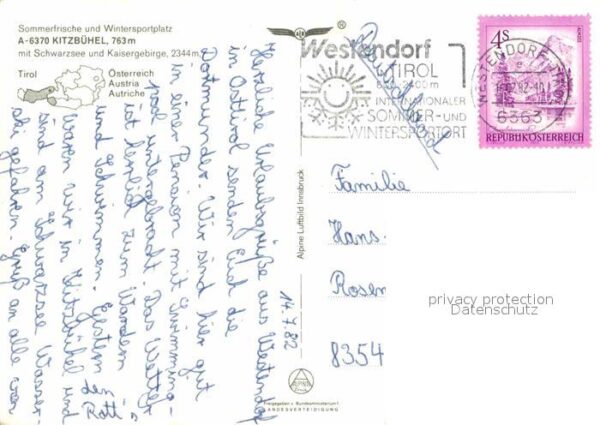 Sommerfrische und Wintersportplatz
A-6370 KITZBÜHEL, 763 m
mit Schwarzsee und Kaisergebirge, 2344 m
Tirol
Österreich
Austria
Autriche
Herzliche Urlaubsgrüße aus Westendorf
in Osttirol senden Euch die
Dortmunder. Wir sind hier gut
in einer Pension mit Swimming-
pool untergebracht. Das Wetter
ist herrlich zum Wandern
und Schwimmen. Gestern
waren wir in Kitzbühel und
sind am Schwarzsee Wasser-
ski gefahren. Gruß an alle von
den
Rott's
14.7.82
Alpine Luftbild Innsbruck
ALPINE
Freigegeben v. Bundesministerium f.
LANDESVERTEIDIGUNG
®
Westendorf
TIROL
INTERNATIONALER
SOMMER - UND
WINTERSPORTORT
Deutschland
WESTENDORF, TIROL
6363
4 S
REPUBLIK ÖSTERREICH
Familie
Hans
Rosen
8354
privacy protection
Datenschutz